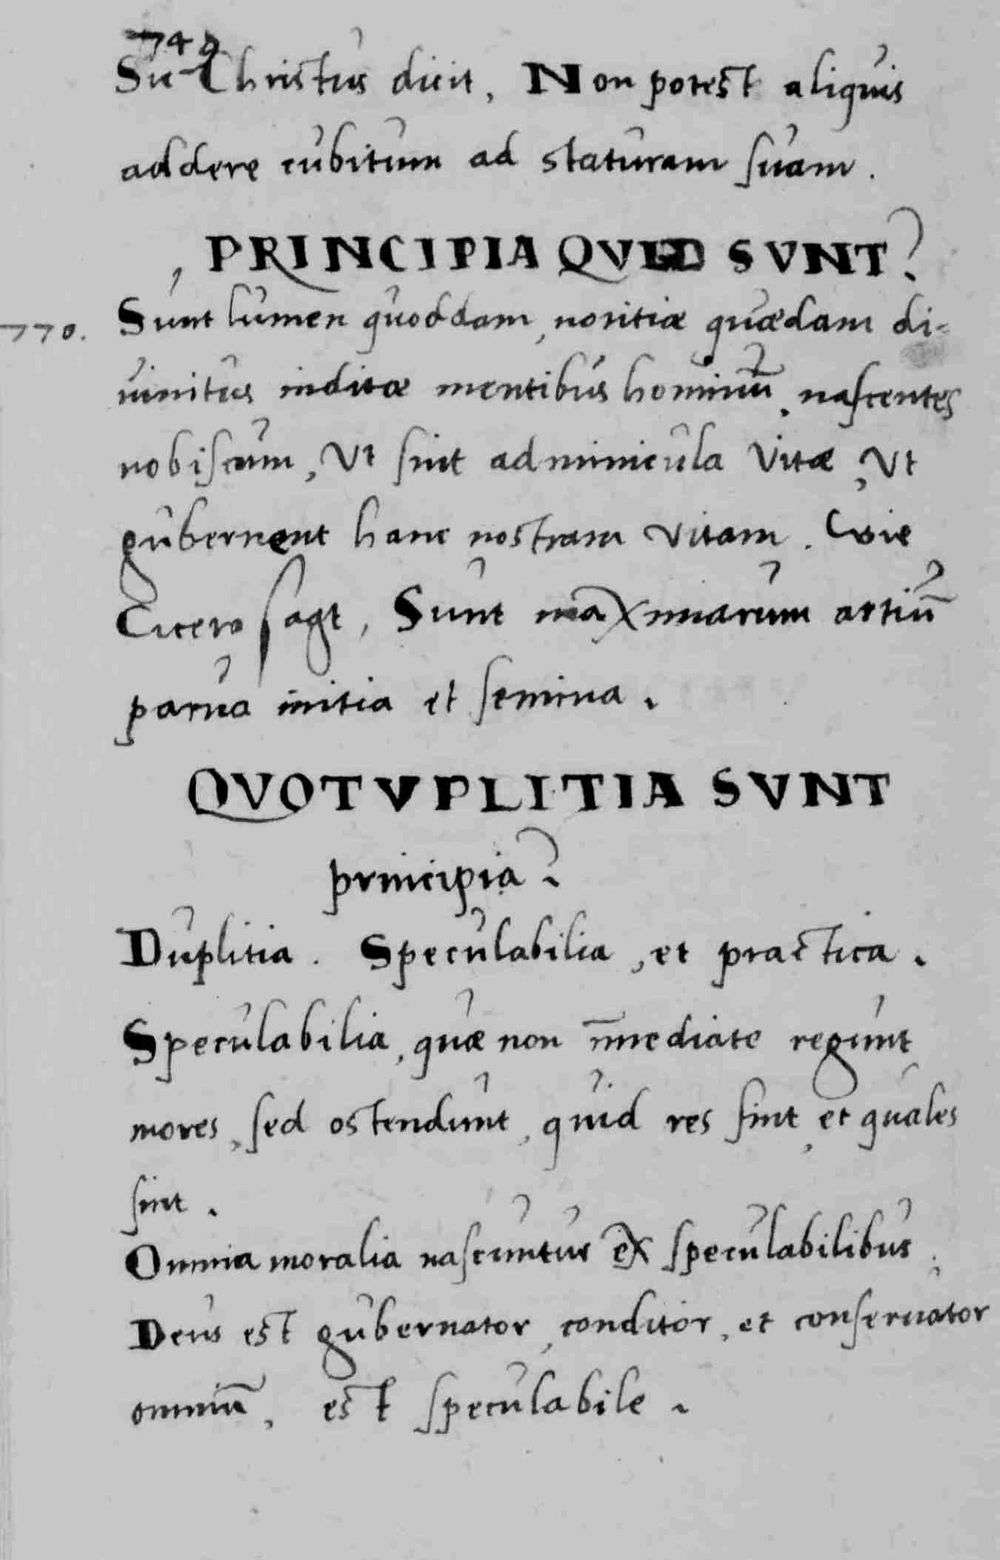 749
Sic Christus dicit, Non potest aliquis
addere cubitum ad staturam suam.
PRINCIPIA QVID SVNT?
770. Sunt lumen quoddam, notitiæ quædam di-
uinitus inditæ mentibus hominū, nascentes
nobiscum, Vt sint adminicula Vitæ, Vt
gubernent hanc nostram vitam. Wie
Cicero sagt, Sunt maXimarum artiū
parua initia et semina.
QVOTVPLITIA SVNT
principia?
Duplitia. Speculabilia, et practica.
Speculabilia, quæ non īmediate regunt
mores, sed ostendunt, quid res sint, et quales
sint.
Omnia moralia nascuntur eX speculabilibus.
Deus est gubernator, conditor, et conseruator
omniū, est speculabile.